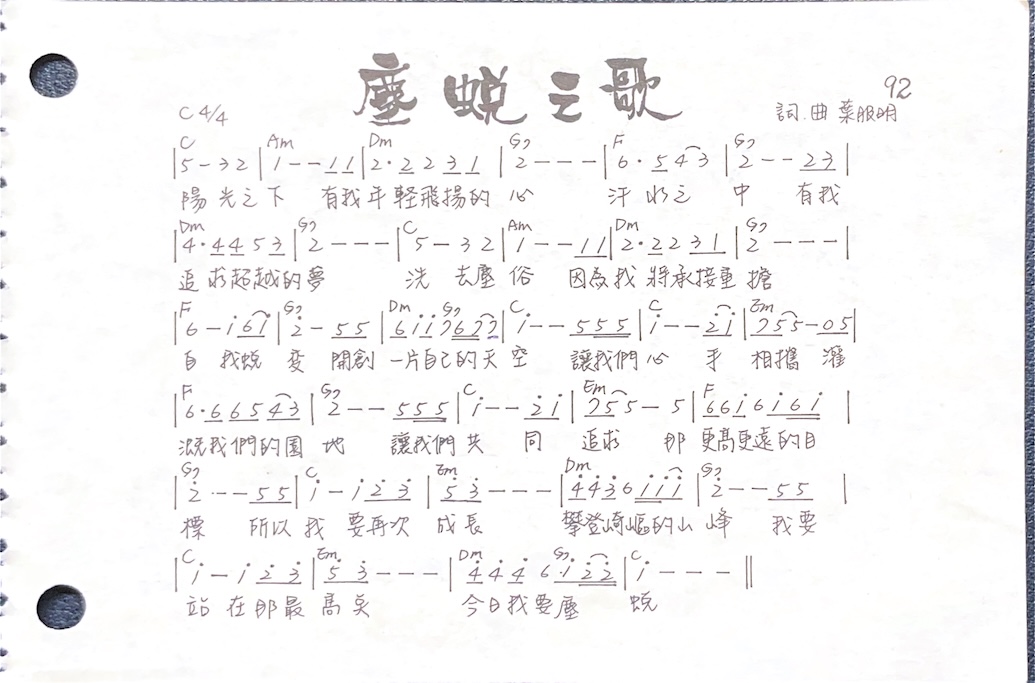 塵蛻之歌
92
C 4/4
詞.曲 葉服明
C Am Dm G7 F G7
|5 - 3 2|1 - - 1 1|2· 2 2 3 1|2 - - -|6· 5 4 3|2 - - 2 3|
陽光之下 有我年輕飛揚的心 汗水之中 有我
Dm G7 C Am Dm G7
|4· 4 4 5 3|2 - - -|5 - 3 2|1 - - 1 1|2· 2 2 3 1|2 - - -|
追求超越的夢 洗去塵俗 因為我將承接重擔
F G7 Dm G7 C C Em
|6 - i 6 i|2 - 5 5|6 i i 7 6 7 7|i - - 5 5 5|i - - 2 i|7 5 5 - 0 5|
自我蛻變 開創一片自己的天空 讓我們心手相攜 灌
F G7 C Em F
|6· 6 6 5 4 3|2 - - 5 5 5|i - - 2 i|7 5 5 - 5|6 6 i 6 i 6 i|
溉我們的園地 讓我們共同追求 那更高更遠的目
G7 C Em Dm G7
|2 - - - 5 5|i - i 2 3|5 3 - - -|4 4 3 6 i i i|2 - - 5 5|
標 所以我要再次成長 攀登崎嶇的山峰 我要
C Em Dm G7 C
|i - i 2 3|5 3 - - -|4 4 4 6· i 2 2|i - - -||
站在那最高矣 今日我要塵蛻